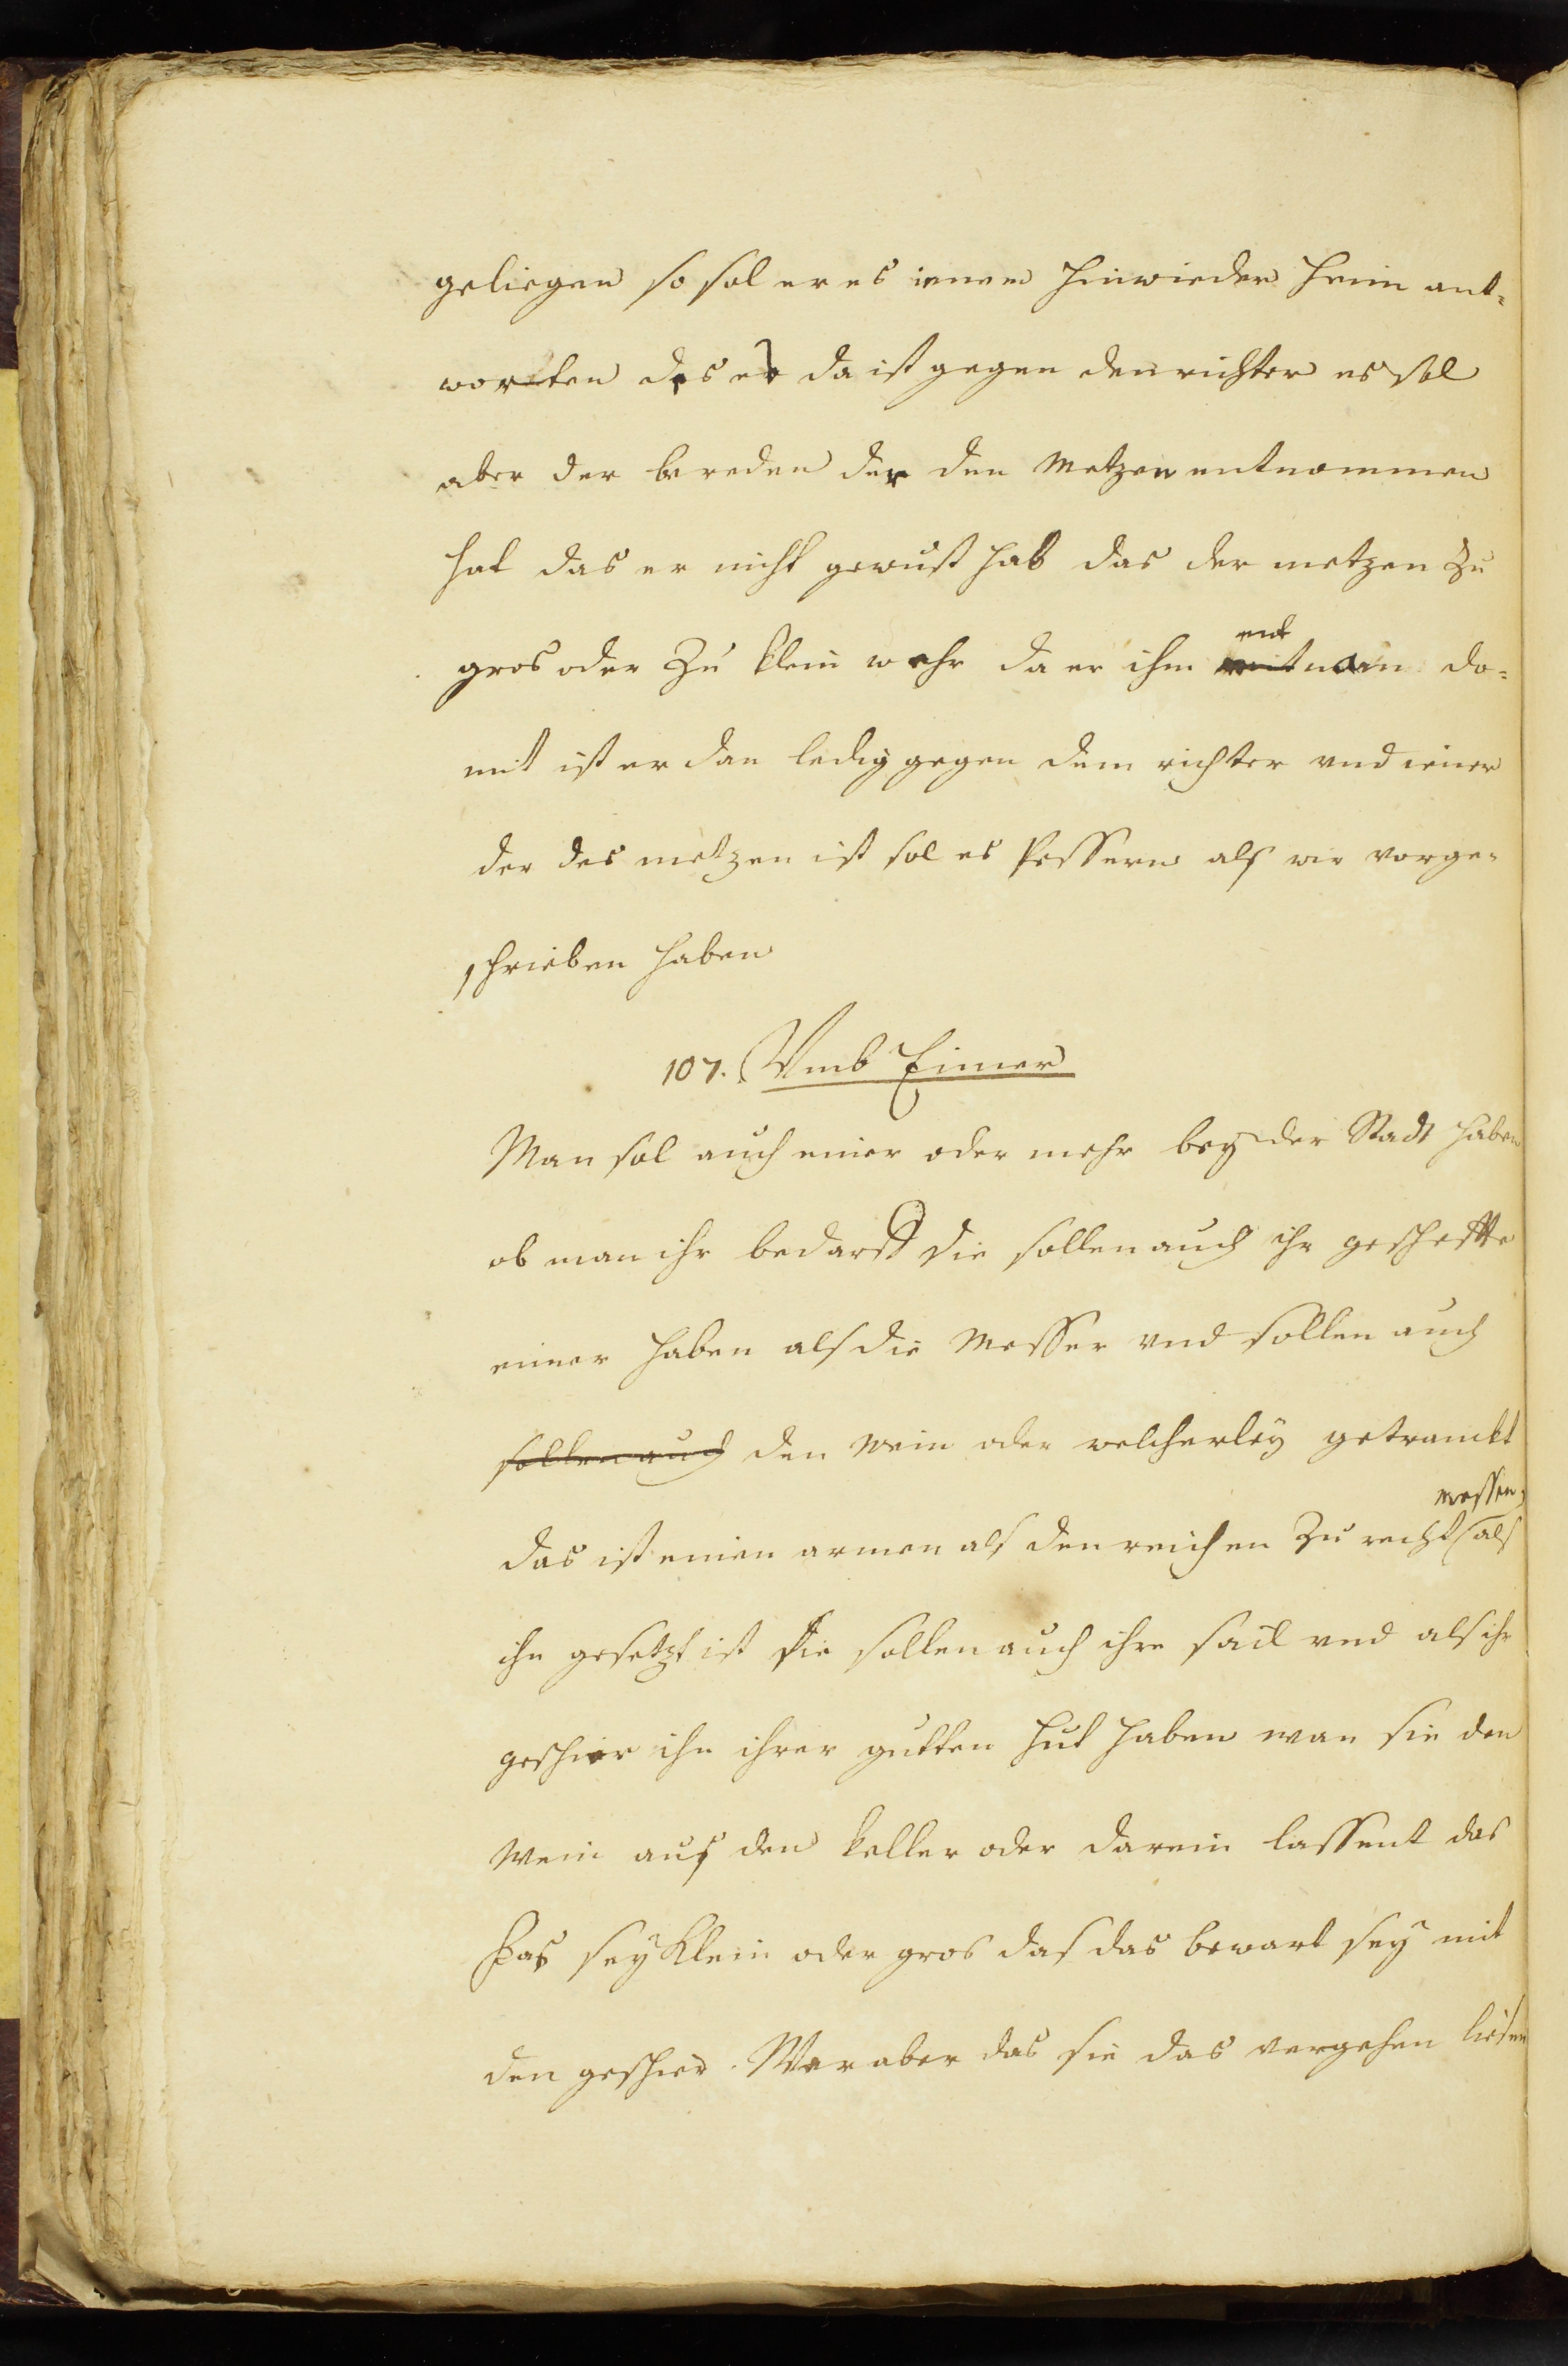 geliegen so sol er es ienem hinwieder heim ant-
worten des es da ist gegen den richter es sol
aber der bereden der den Metzen entnommen
hat das er nicht gewust hab das der metzen zu
gros oder zu klein wehr da er ihm ent mitnam do-
mit ist er dan ledig gegen dem richter vnd iener
der des metzen ist sol es pessern als wir vorge-
schrieben haben
107. Vmb Eimer
Man sol auch einer oder mehr bey der Stadt haben
ob man ihr bedarff die sollen auch ihr geschefte
eimer haben als die Messer vnd sollen auch
sollen auch den Wein oder welcherley getranckt
messen,
das ist einen armen als den reichen zu recht als
ihn gesetzt ist sie sollen auch ihre sail vnd als ihr
geschier ihn ihrer gutten hut haben wan sie den
Wein aus den keller oder darein lassent das
Fas sey klein oder gros das das bewart sey mit
den geschier. Wer aber das sie das vergehen liesen